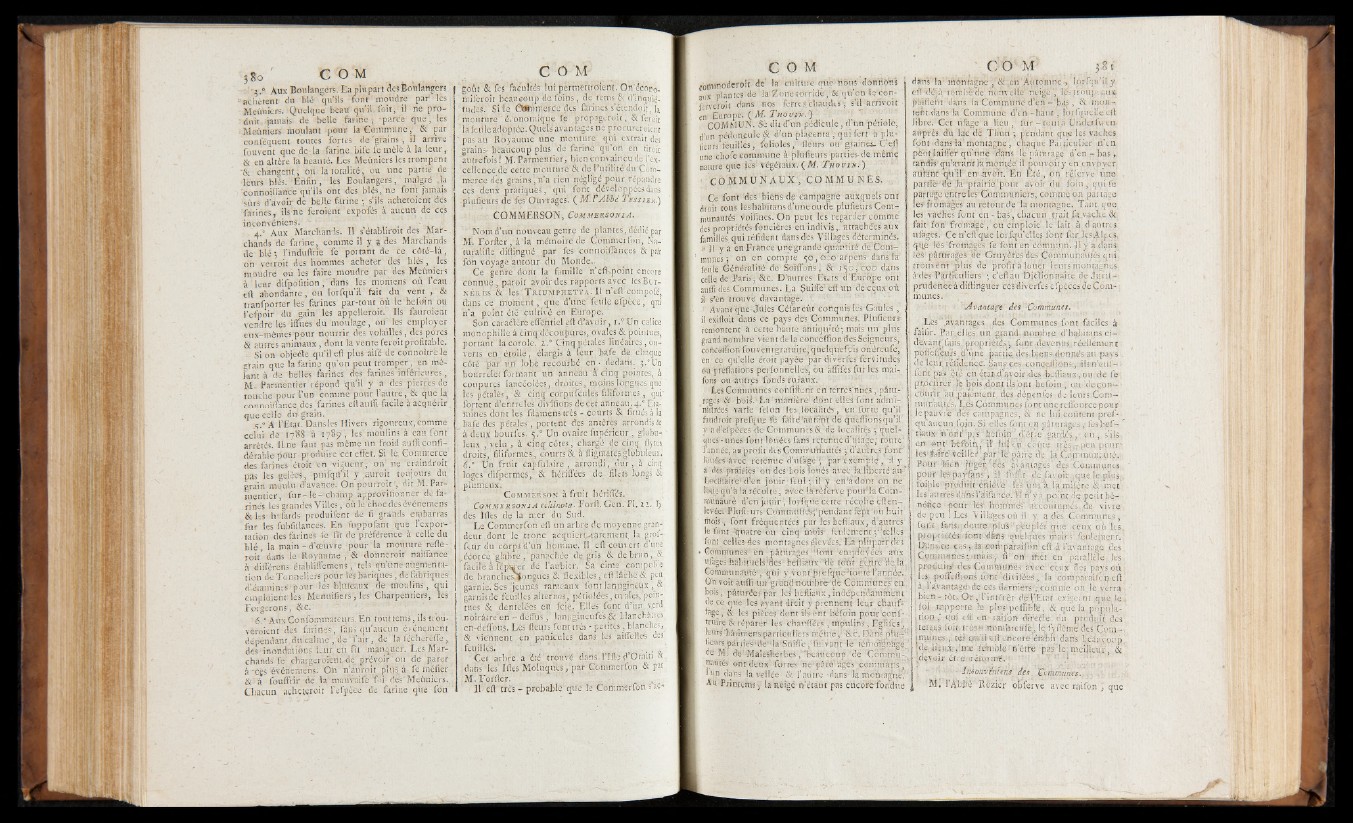 380 C O M
3.° Aux Boulangers. La plupart des Boulangers
achetent du blé qu'ils font moudre par les
Meûniers. Quelque beau qu'il soit, il ne pro-
duit jamais de belle farine, parce que, les
Meûniers moulant pour la Commune, & par
conséquent toutes sortes de grains, il arrive
souvent que de la farine bise se mêle à la leur,
& en altère la beauté. Les Meûniers les trompent
& changent, ou la totalité, ou une partie de
leurs blés. Enfin, les Boulangers, malgré la
connoissance qu'ils ont des blés, ne sont jamais
sûrs d'avoir de belle farine ; s'ils achetoient des
farines, ils ne seroient exposés à aucun de ces
inconvéniens.
4.° Aux Marchands. Il s'établiroit des Mar-
chands de farine, comme il y a des Marchands
de blé ; l'industrie se portant de ce côté-là,
on verroit des hommes acheter des blés, les
moudre ou les faire moudre par des Meûniers
à leur disposition, dans les momens où l'eau
est abondante, ou lorsqu'il fait du vent, &
transporter les farines par-tout où le besoin ou
l'espoir du gain les appelleroit. Ils sauroient
vendre les issues du moulage, ou les employer
eux-mêmes pour nourrir des volailles, des porcs
& autres animaux, dont la vente seroit profitable.
Si on objecte qu'il est plus aisé de connoître le
grain que la farine qu'on peut tromper, en mê-
lant à de belles farines des farines inférieures,
M. Parmentier répond qu'il y a des pierres de
touche pour l'un comme pour l'autre, & que la
connoissance des farines est aussi facile à acquérir
que celle du grain.
5.° A l'Etat. Dans les Hivers rigoureux, comme
celui de 1788 à 1789, les moulins à eau sont
arrêtés. Il ne faut pas même un froid aussi consi-
dérable pour produire cet effet. Si le Commerce
des farines étoit en vigueur, on ne craindroit
pas les gelées, puisqu'il y auroit toujours du
grain moulu d'avance. On pourroit, dit M. Par-
mentier, sur-le-champ approvisionner de fa-
rines les grandes Villes, où le choc des événemens
& les hasards produisent de si grands embarras
sur les subsistances. En supposant que l'expor-
tation des farines se fît de préférence à celle du
blé, la main-d'œuvre pour la mouture reste-
roit dans le Royaume, & donneroit naissance
à différens établissemens, tels qu'une augmenta-
tion de Tonneliers pour les bariques, de fabriques
d'étamines pour les bluteaux de moulins, qui
emploient les Menuisiers, les Charpentiers, les
Forgerons, &c.
6.° Aux Consommateurs. En tout tems, ils trou-
veroient des farines, sans qu'aucun événement
dépendant du calme, de l'air, de la sécheresse,
des inondations leur en fît manquer. Les Mar-
chands se chargeroient de prévoir ou de parer
à ces événemens. On n'auroit plus à se méfier
& à souffrir de la mauvaise foi des Meûniers.
Chacun acheteroit l'espèce de farine que son
C O M
goût & ses facultés lui permettroient. On écono-
miseroit beaucoup de soins, de tems & d'inquié-
tudes. Si le Commerce des farines s'étendoit, la
mouture économique se propageroit, & seroit
la seule adoptée. Quels avantages ne procureroient
pas au Royaume une mouture qui extrait des
grains beaucoup plus de farine qu'on en tiroit
autrefois ! M. Parmentier, bien convaincu de l'ex-
cellence de cette mouture & de l'utilité du Com-
merce des grains, n'a rien négligé pour répandre
ces deux pratiques, qui sont développées dans
plusieurs de ses Ouvrages. ( M. l'Abbé Tessier. )
COMMERSON, Commersonia.
Nom d'un nouveau genre de plantes, dédié par
M. Forster, à la mémoire de Commerson, Na-
turaliste distingué par ses connoissances & par
son voyage autour du Monde.
Ce genre dont la famille n'est point encore
connue, paroît avoir des rapports avec les Butt-
neres & les Triumfetta. Il n'est composé,
dans ce moment, que d'une seule espèce, qui
n'a point été cultivée en Europe.
Son caractère essentiel est d'avoir, 1.° Un calice
monophille à cinq découpures, ovales & pointues,
portant la corole. 2.° Cinq pétales linéaires, ou-
verts en étoile, élargis à leur base de chaque
côté par un lobe recourbé en-dedans. 3.° Un
bourrelet formant un anneau à cinq pointes, à
coupures lancéolées, droites, moins longues que
les pétales, & cinq corpuscules filiformes, qui
sortent d'entre les divisions de cet anneau. 4.° Eta-
mines dont les filamens très-courts & situés à la
base des pétales, portent des antères arrondis &
à deux bourses. 5.° Un ovaire supérieur, globu-
leux, velu, à cinq côtes, chargé de cinq styles
droits, filiformes, courts & à stigmates globuleux.
6.° Un fruit capsulaire, arrondi, dur, à cinq
loges dispermes, & hérissées de filets longs &
plumeux.
Commerson à fruit hérissés.
Commersonia echinata. Forst. Gen. Pl. 22. ♄
des Isles de la mer du Sud.
Le Commerson est un arbre de moyenne gran-
deur dont le tronc acquiert rarement la gros-
seur du corps d'un homme. Il est couvert d'une
écorce glabre, panachée de gris & de brun, &
facile à séparer de l'aubier. Sa cime composée
de branches longues & flexibles, est lâche & peu
garnie. Ses jeunes rameaux sont lanugineux, &
garnis de feuilles alternes, pétiolées, ovales, poin-
tues & dentelées en scie. Elles sont d'un verd
noirâtre en-dessus, lanugineuses & blanchâtres
en-dessous. Les fleurs sont très-petites, blanches,
& viennent en panicules dans les aisselles des
feuilles.
Cet arbre a été trouvé dans l'Isle d'Otaïti &
dans les Isles Moluques, par Commerson & par
M. Forster.
Il est très-probable que le Commerson s'ac-
C O M
commoderoit de la culture que nous donnons
aux plantes de la Zone torride, & qu'on le con-
serveroit dans nos serres chaudes, s'il arrivoit
en Europe. ( M. Thouin. )
COMMUN. Se dit d'un pédicule, d'un pétiole,
d'un pédoncule & d'un placenta, qui sert à plu-
sieurs feuilles, folioles, fleurs ou graines. C'est
une chose commune à plusieurs parties de même
nature que les végétaux. ( M. Thouin. )
COMMUNAUX, COMMUNES.
Ce sont des biens de campagne auxquels ont
droit tous les habitans d'une ou de plusieurs Com-
munautés voisines. On peut les regarder comme
des propriétés foncières en indivis, attachées aux
familles qui résident dans des Villages déterminés.
Il y a en France une grande quantité de Com-
munes ; on en compte 50,000 arpens dans la
seule Généralité de Soissons, & 150,000 dans
celle de Paris, &c. D'autres Etats d'Europe ont
aussi des Communes. La Suisse est un de ceux où
il s'en trouve davantage.
Avant que Jules César eût conquis les Gaules,
il existoit dans ce pays des Communes. Plusieurs
remontent à cette haute antiquité ; mais un plus
grand nombre vient de la concession des Seigneurs,
concession souvent gratuite, quelquefois onéreuse,
en ce qu'elle étoit payée par diverses servitudes
ou prestations personnelles, ou assises sur les mai-
sons ou autres fonds ruraux.
Les Communes consistent en terres nues, pâtu-
rages & bois. La manière dont elles sont admi-
nistrées varie selon les localités, en sorte qu'il
faudroit presque se faire autant de questions qu'il
y a d'espèces de Communes & de localités ; quel-
ques-unes sont louées sans retenue d'usage, toute
l'année, au profit des Communautés ; d'autres sont
louées avec retenue d'usage ; par exemple, il y
a des prairies ou des bois loués avec la liberté au
Locataire d'en jouir seul ; il y en a dont on ne
loue qu'à la récolte, avec la réserve pour la Com-
munauté d'en jouir, lorsque cette récolte est en-
levée. Plusieurs Communes, pendant sept ou huit
mois, sont fréquentées par les bestiaux, d'autres
le sont quatre ou cinq mois seulement ; telles
sont celles des montagnes élevées. La plupart des
Communes en pâturages sont employées aux
usages habituels des bestiaux de tout genre de la
Communauté, qui y vont presque toute l'année.
On voit aussi un grand nombre de Communes en
bois, pâturées par les bestiaux, indépendamment
de ce que les ayant droit y prennent leur chauf-
fage, & les pièces dont ils ont besoin pour cons-
truire & réparer les chaussées, moulins, Eglises,
leurs bâtimens particuliers même, &c. Dans plu-
sieurs parties de la Suisse, suivant le témoignage
de M. de Malesherbes, beaucoup de Commu-
nautés ont deux sortes de pâturages communs,
l'un dans la vallée & l'autre dans la montagne.
Au Printems, la neige n'étant pas encore fondue
C O M 381
dans la montagne, & en Automne, lorsqu'il y
est déjà tombé de nouvelle neige, les troupeaux
paissent dans la Commune d'en-bas, & mon-
tent dans la Commune d'en-haut, lorsqu'elle est
libre. Cet usage a lieu, sur-tout à Underseven
auprès du lac de Thun ; pendant que les vaches
sont dans la montagne, chaque Particulier n'en
peut laisser qu'une dans le pâturage d'en-bas,
tandis qu'avant la montée il pouvoit y en envoyer
autant qu'il en avoit. En Été, on réserve une
partie de la prairie pour avoir du foin, qui se
partage entre les Communiers, comme on partage
les fromages au retour de la montagne. Tant que
les vaches sont en-bas, chacun trait sa vache &
fait son fromage, ou emploie le lait à d'autres
usages. Ce n'est que lorsqu'elles sont sur les Alpes,
que les fromages se font en commun. Il y a dans
les pâturages de Gruyères des Communautés qui
trouvent plus de profit à louer leurs montagnes
à des Particuliers ; c'est au Dictionnaire de Juris-
prudence à distinguer ces diverses espèces de Com-
munes.
Avantage des Communes.
Les avantages des Communes sont faciles à
saisir. Par elles un grand nombre d'habitans ci-
devant sans propriétés, sont devenus réellement
possesseurs d'une partie des biens donnés au pays
de leur résidence. Sans ces concessions, ils n'au-
roient pas été en état d'avoir des bestiaux, ou de se
procurer le bois dont ils ont besoin, ou de con-
courir au paiement des dépenses de leurs Com-
munautés. Les Communes sont une ressource pour
le pauvre des campagnes, & ne lui coûtent pres-
qu'aucun soin. Si elles sont en pâturages, ses bes-
tiaux n'ont pas besoin d'être gardés, ou, s'ils
en ont besoin, il lui en coûte très-peu pour
les faire veiller par le pâtre de la Communauté.
Pour bien juger des avantages des Communes
pour les paysans, il suffit de savoir que le plus
foible produit enlève les uns à la misère & met
les autres dans l'aisance. Il n'y a point de petit bé-
néfice pour les hommes accoutumés à vivre
de peu. Les Villages où il y a des Communes,
sont sans doute plus peuplés que ceux où les
propriétés sont dans quelques mains seulement.
Dans ce cas, la comparaison est à l'avantage des
Communes ; mais, si on met en parallèle les
produits des Communes avec ceux des pays où
les possessions sont divisées, la comparaison est
à l'avantage de ces derniers, comme on le verra
bientôt. Or, l'intérêt de l'Etat exigeant que le
sol rapporte le plus possible, & que la popula-
tion, qui est en raison directe du produit des
terres soit très-nombreuse, le système des Com-
munes, tel qu'il est encore établi dans beaucoup
de lieux, me semble n'être pas le meilleur, &
devoir être réformé.
Inconvéniens des Communes.
M. l'Abbé Rozier observe avec raison, que